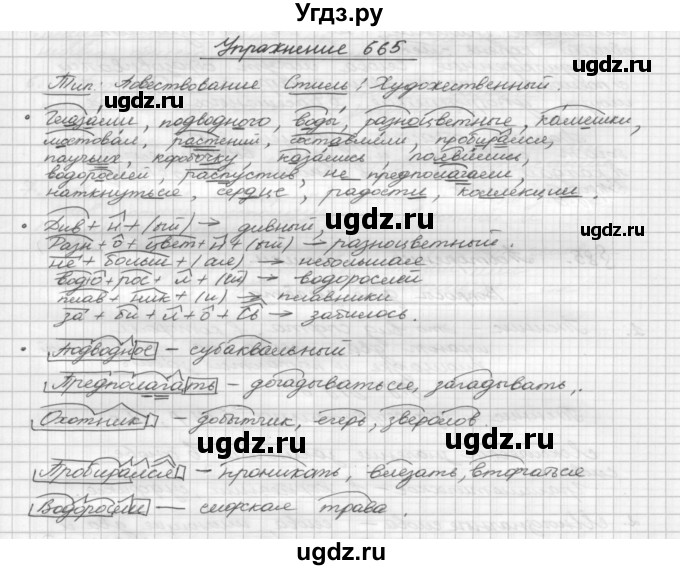 Угдз.ру
Упражнение 665
Тип: Повествование Стиль: Художественный.
ugdz.ru ugdz.ru
• Глазами, подводного, воды, разноцветные, камешки,
мостовая, растений, составляли, пробирался,
паучьих, коробочку, казались, появились,
водорослей, распустив, не предполагаем,
наткнуться, сердце, радости, коллекции.
ugdz.ru ugdz.ru
• Див + н + (ый) → дивный,
Разн + о + цвет + н + (ый) → разноцветный.
не + больш + (ая) → небольшая
вод + о + рос + л + (и) → водоросли
плав + ник + (и) → плавники
за + би + л + о + сь → забилось.
ugdz.ru ugdz.ru
• Подводное – субаквальный
Предполагать – догадываться, загадывать,.
Охотник – добытчик, егерь, зверолов.
ugdz.ru
Пробирался – проникать, влезать, вторгаться
Водоросли – морская трава.
ugdz.ru ugdz.ru